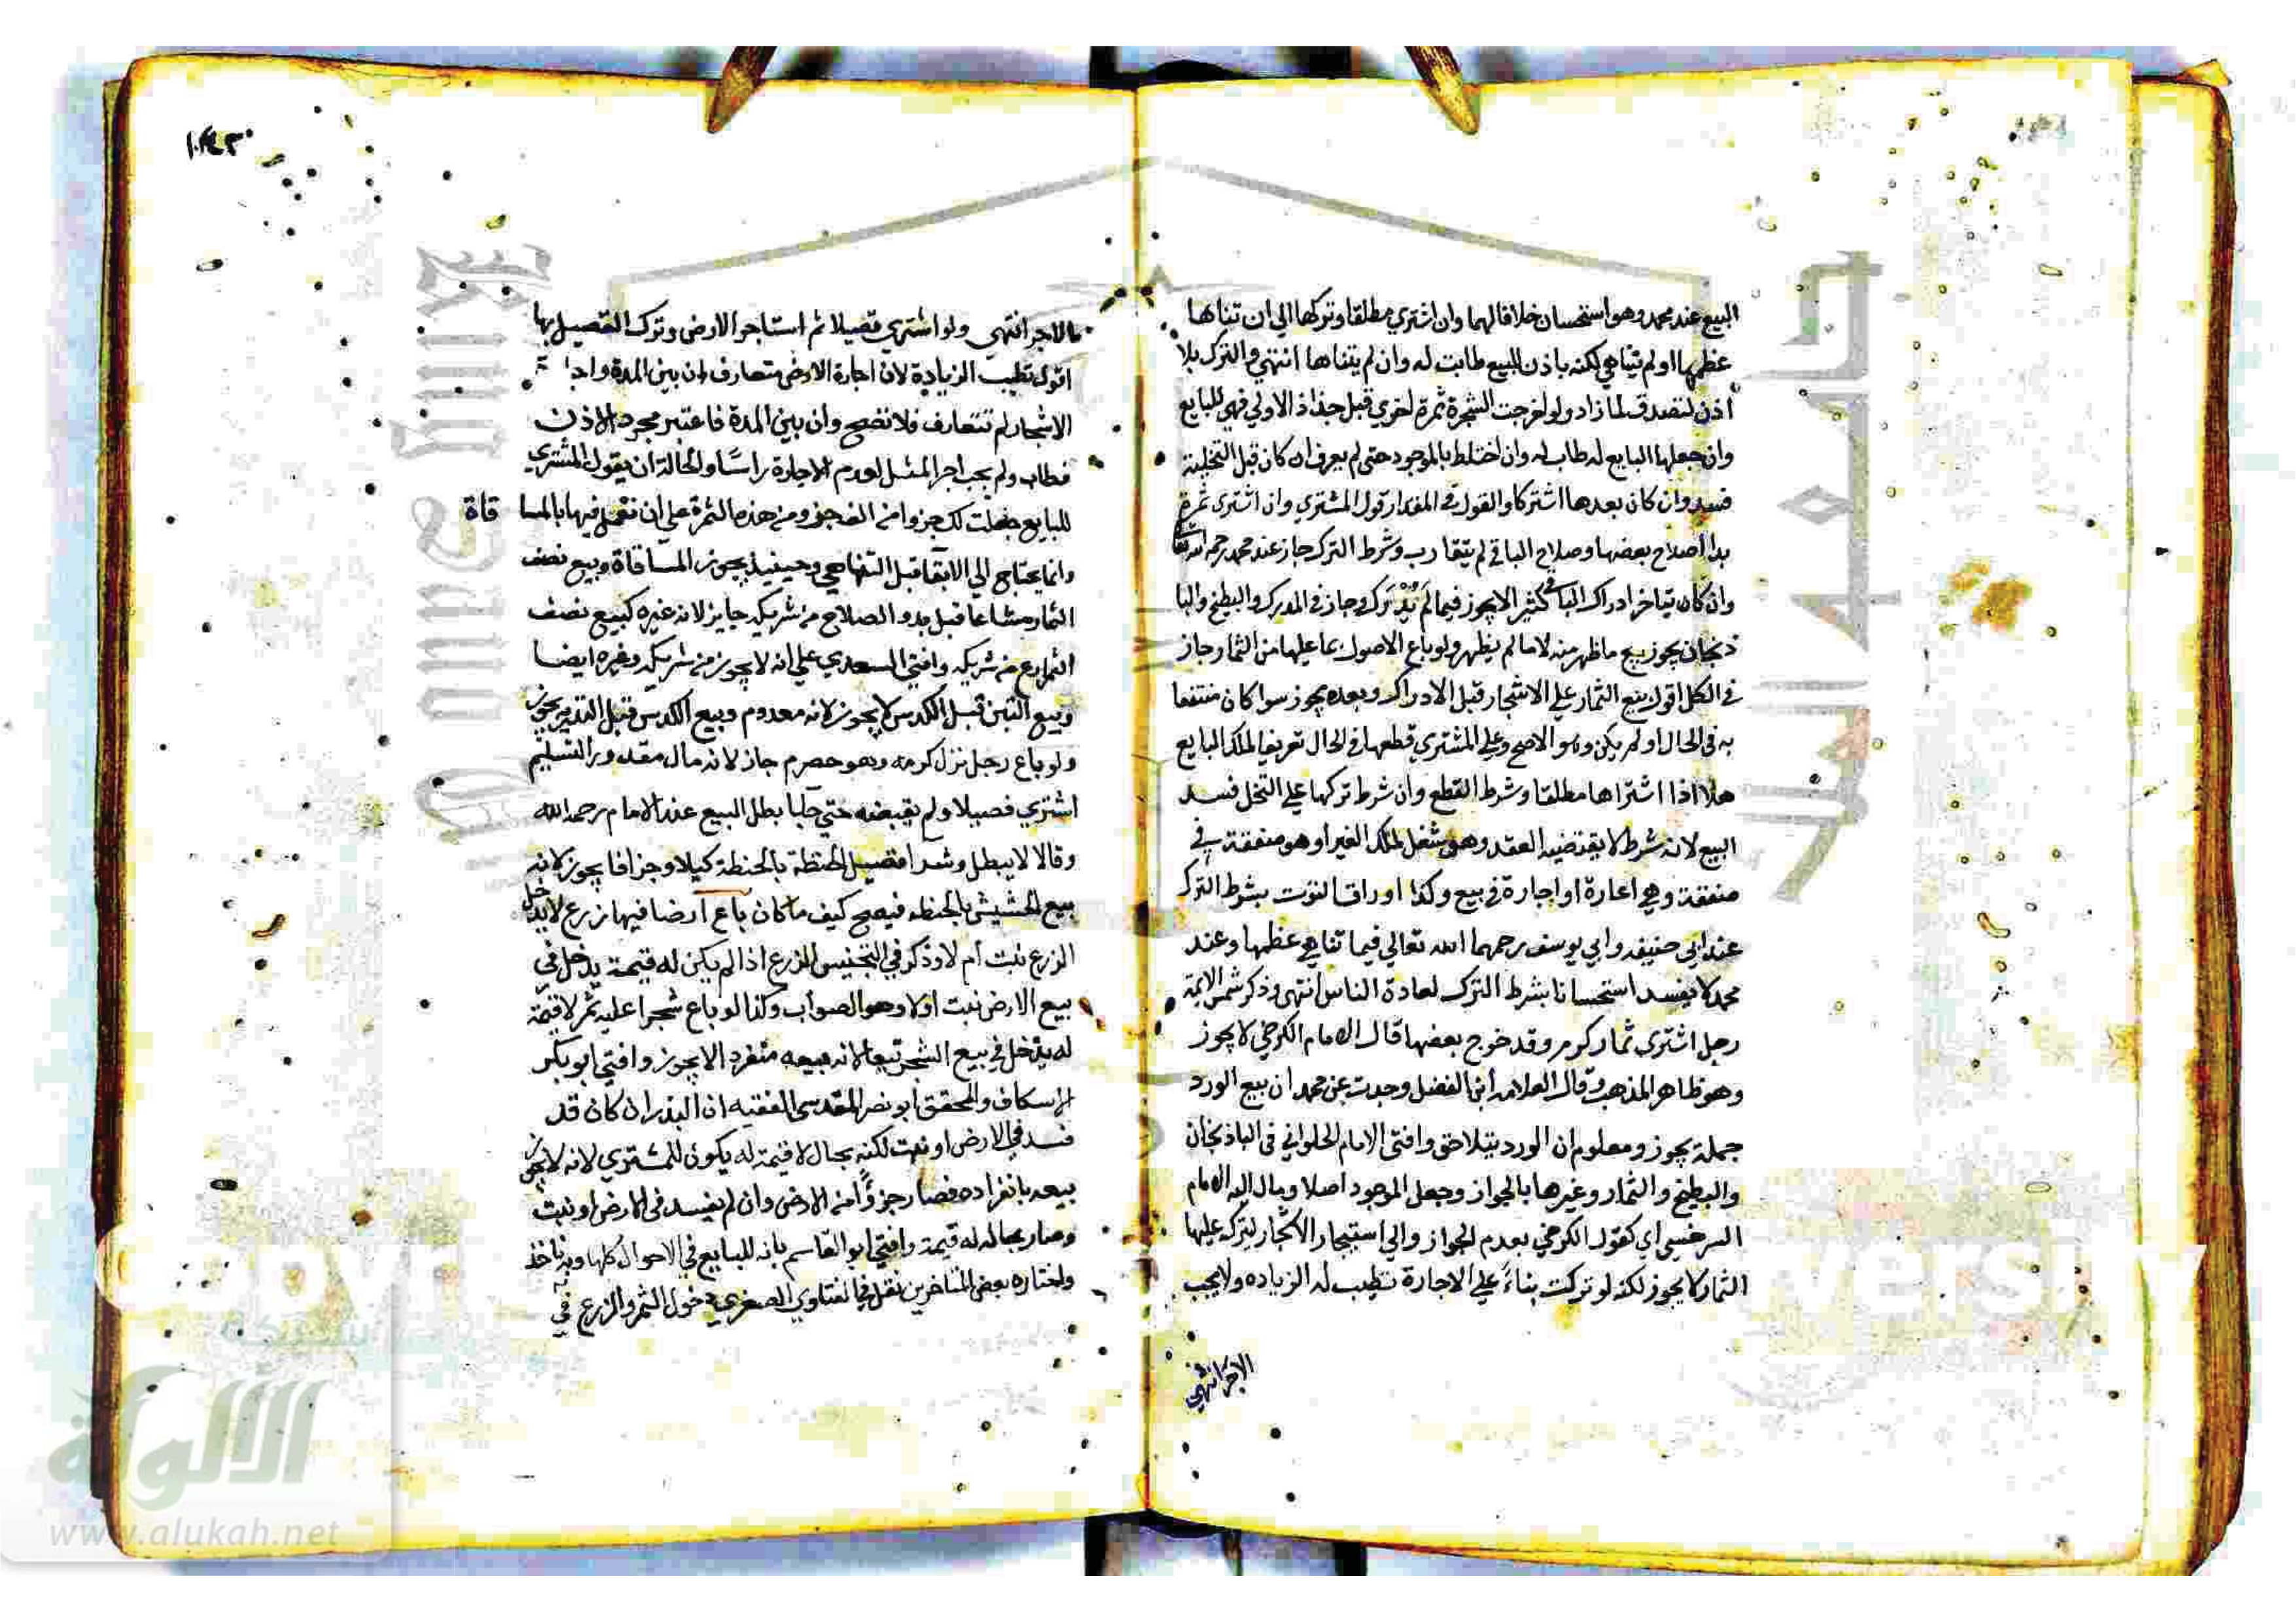 البيع عند محمد وهو استحسان خلافا لهما وان اشتري مطلقا وتركها الي ان تناها
عظمها او لم يتناهي لكنه باذن البيع طابت له وان لم يتناها انتهي والترك بلا
اذن لتصدق لما زاد ولو اخرجت الشجرة ثمرة اخري قبل جذاذ الاولي فهي للبايع
وان جعلها البايع له طاب له وان اختلط بالموجود حتي لم يعرف ان كان قبل التخلية
فسد وان كان بعدها اشتركا والقول في المقدار قول المشتري وان اشتري ثمرة
بدا صلاح بعضها وصلاح الباقي لم يتقارب وشرط الترك جاز عند محمد رحمه الله
وان كان تياخر ادراك الباقي كثير الا يجوز فيما لم يدرك وجاز في المدرك والبطيخ والبا
ذنجان يجوز بيع ما ظهر منه لا ما لم يظهر ولو باع الاصول بما عليها من الثمار جاز
في الكل اقول بيع الثمار علي الاشجار قبل الادراك وبعده يجوز سوا كان منتفعا
به في الحال او لم يكن وهو الاصح وعلي المشتري قطعها في الحال تفريغا لملك البايع
هذا اذا اشتراها مطلقا وشرط القطع وان شرط تركها علي النخل فسد
البيع لانه شرط لا يقتضيه العقد وهو شغل لملك الغير او هو منفقة في
منفقة وهي اعارة او اجارة في بيع وكذا اوراق التوت بشرط الترك
عند ابي حنيفه وابي يوسف رحمهما الله تعالي فيما تناهي عظمها وعند
محمد لا يفسد استحسانا بشرط الترك لعادة الناس انتهي وذكر شمس الايمة
رجل اشتري ثمار كرم وقد خرج بعضها قال الامام الكرخي لا يجوز
وهو ظاهر المذهب وقال العلامه ابن الفضل وجدت عن محمد ان بيع الورد
جملة يجوز ومعلوم ان الورد يتلاحق وافتي الامام الحلواني في الباذنجان
والبطيخ والثمار وغيرها بالجواز وجعل الموجود اصلا ومال اليه الامام
السرخسي اي كقول الكرخي بعدم الجواز والي استيجار الاشجار لترك عليها
الثمار لا يجوز لكنه لو تركت بناء علي الاجارة تطيب له الزياده ولا يجب
الاجر انتهي
١٠٤٣
بالاجر انتهي ولو اشتري قصيلا ثم استاجر الارض وترك القصيل بها
اقول تطيب الزيادة لان اجارة الارض متعارف ان بين المدة واجا
الاشجار لم تتعارف فلا تصح وان بين المدة فاعتبر مجرد الاذن
فطاب ولم يجب اجر المثل لعدم الاجارة راسا والحالة ان يقول المشتري
للبايع جعلت لك جزوا من الف جزو من هذه الثمرة علي ان تعمل فيها بالمسا قاة
وانما يحتاج الي الابقا قبل التناهي وحينيذ يجوز المساقاة وبيع نصف
الثمار مشاعا قبل بدو الصلاح من شريكه جايز لانه غيره كبيع نصف
الثمارع من شريكه وافتي السعدي علي انه لا يجوز من شريكه وغيره ايضا
وبيع التبن قبل الكدس لا يجوز لانه معدوم وبيع الكدس قبل التذرية يجوز
ولو باع رجل نزل كرمه وهو حصرم جاز لانه مال مقدور التسليم
اشتري قصيلا ولم يقبضه حتي جا با بطل البيع عند الامام رحمه الله
وقالا لا يبطل وشرا قصيل الحنطة بالحنطة كيلا وجزافا يجوز لانه
بيع الحشيش بالحنطه فيصح كيف ما كان باع ارضا فيها زرع لا يدخل
الزرع نبت ام لا وذكر في التجنيس الزرع اذا لم يكن له قيمة يدخل في
بيع الارض نبت اولا وهو الصواب وكذا لو باع شجرا عليه ثمر لا قيمة
له يدخل في بيع الشجر تبعا لانه بيعه منفرد الا يجوز وافتي ابو بكر
الاسكاف والمحقق ابو نصر المقدسي الفقيه ان البذر ان كان قد
فسد في الارض او نبت لكنه بحال لا قيمة له يكون للمشتري لانه لا يجوز
بيعه بانفراده فصار جزوا من الارض وان لم يفسد في الارض او نبت
وصار بحالة له قيمة وافتي ابو القاسم بانه للبايع في الاحوال كلها وبه ناخذ
واختاره بعض المتاخرين نقل في الفتاوي الصغري دخول الثمر والزرع في
جامعة الملك سعود
شبكة
الألوكة
www.alukah.net